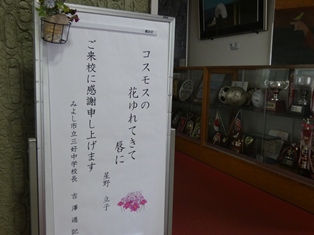 コスモスの
花ゆれてきて
唇に
星野 立子
ご来校に感謝申し上げます
みよし市立三好中学校長 吉澤 通記